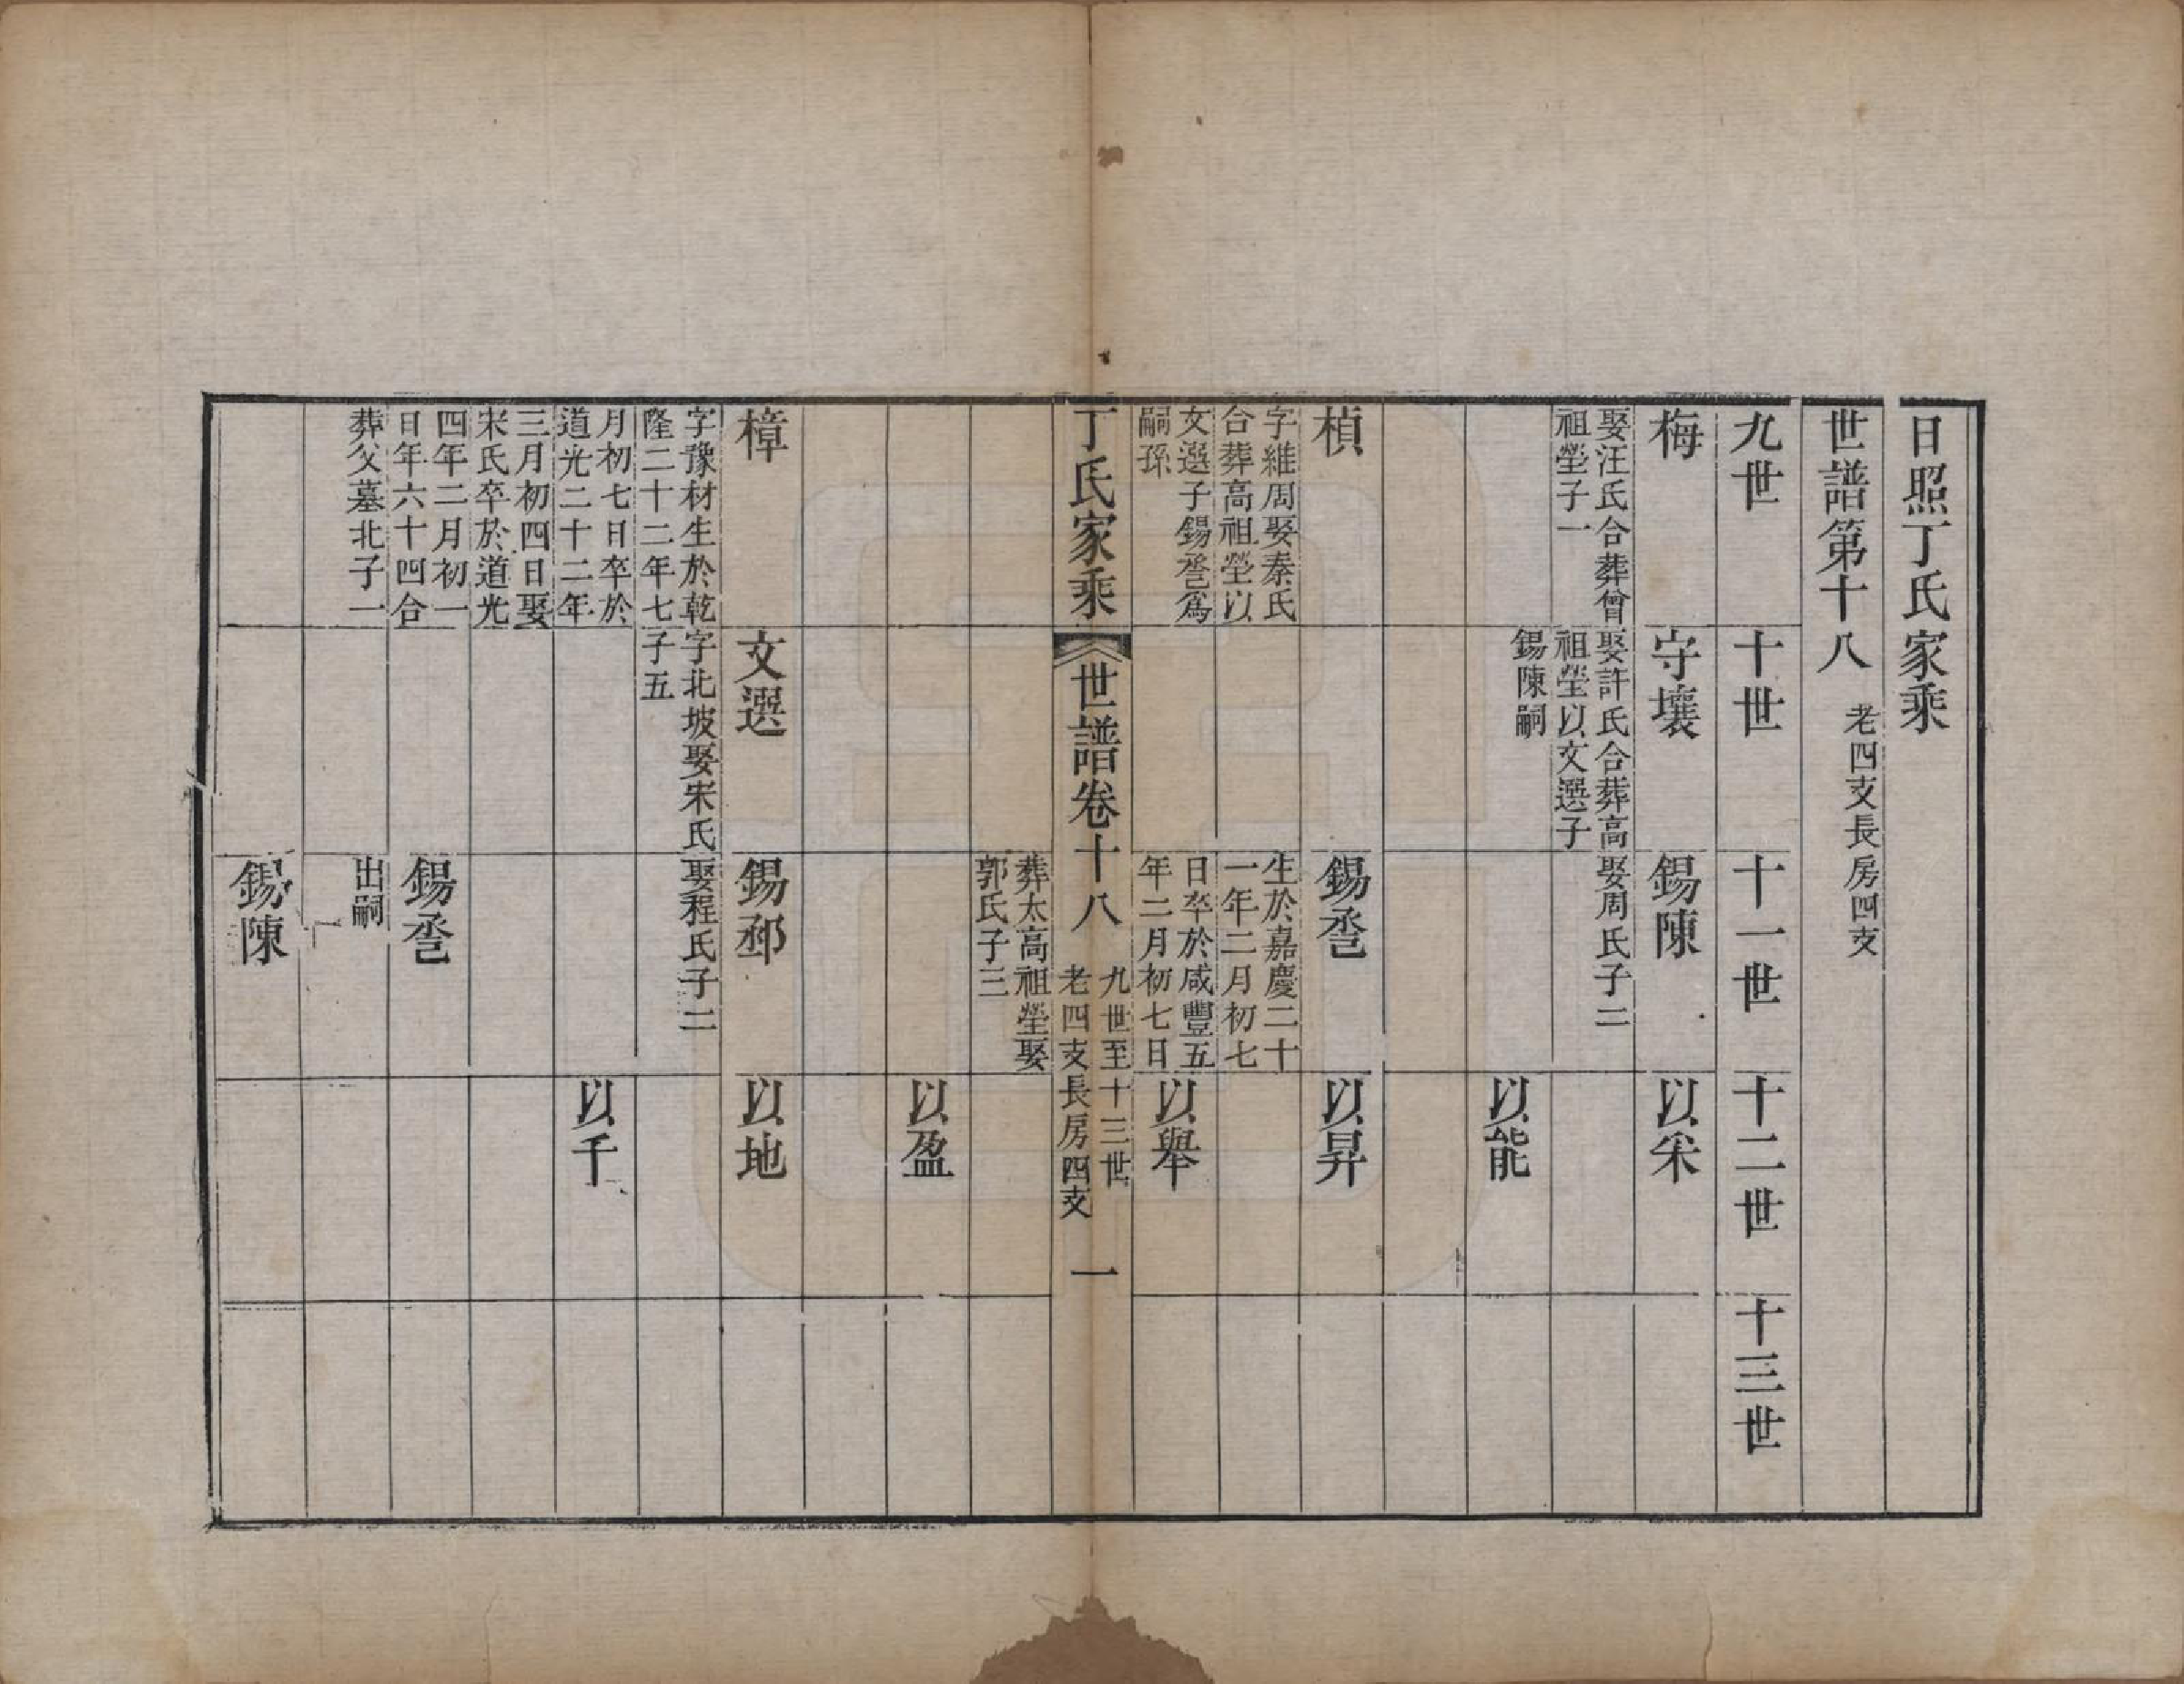 日照丁氏家乘
世譜第十八 老四支長房四支
九世
十世
十一世
十二世
十三世
梅
守壤
錫陳
以采
娶汪氏合葬曾
祖塋子一
娶許氏合葬高
祖塋以文選子
錫陳嗣
娶周氏子二
以能
楨
錫
以昇
字維周娶秦氏
合葬高祖塋以
文選子錫 爲
嗣孫
生於嘉慶二十
一年二月初七
日卒於咸豐五
年二月初七日
以舉
丁氏家乘
世譜卷十八
九世至十三世
老四支長房四支
一
葬太高祖塋娶
郭氏子三
以盈
樟
文選
錫邳
以地
字豫材生於乾
隆二十二年七
月初七日卒於
道光二十二年
三月初四日娶
宋氏卒於道光
四年二月初一
日年六十四合
葬父墓北子一
字北坡娶宋氏
子五
娶程氏子二
以千
錫
出嗣
錫陳